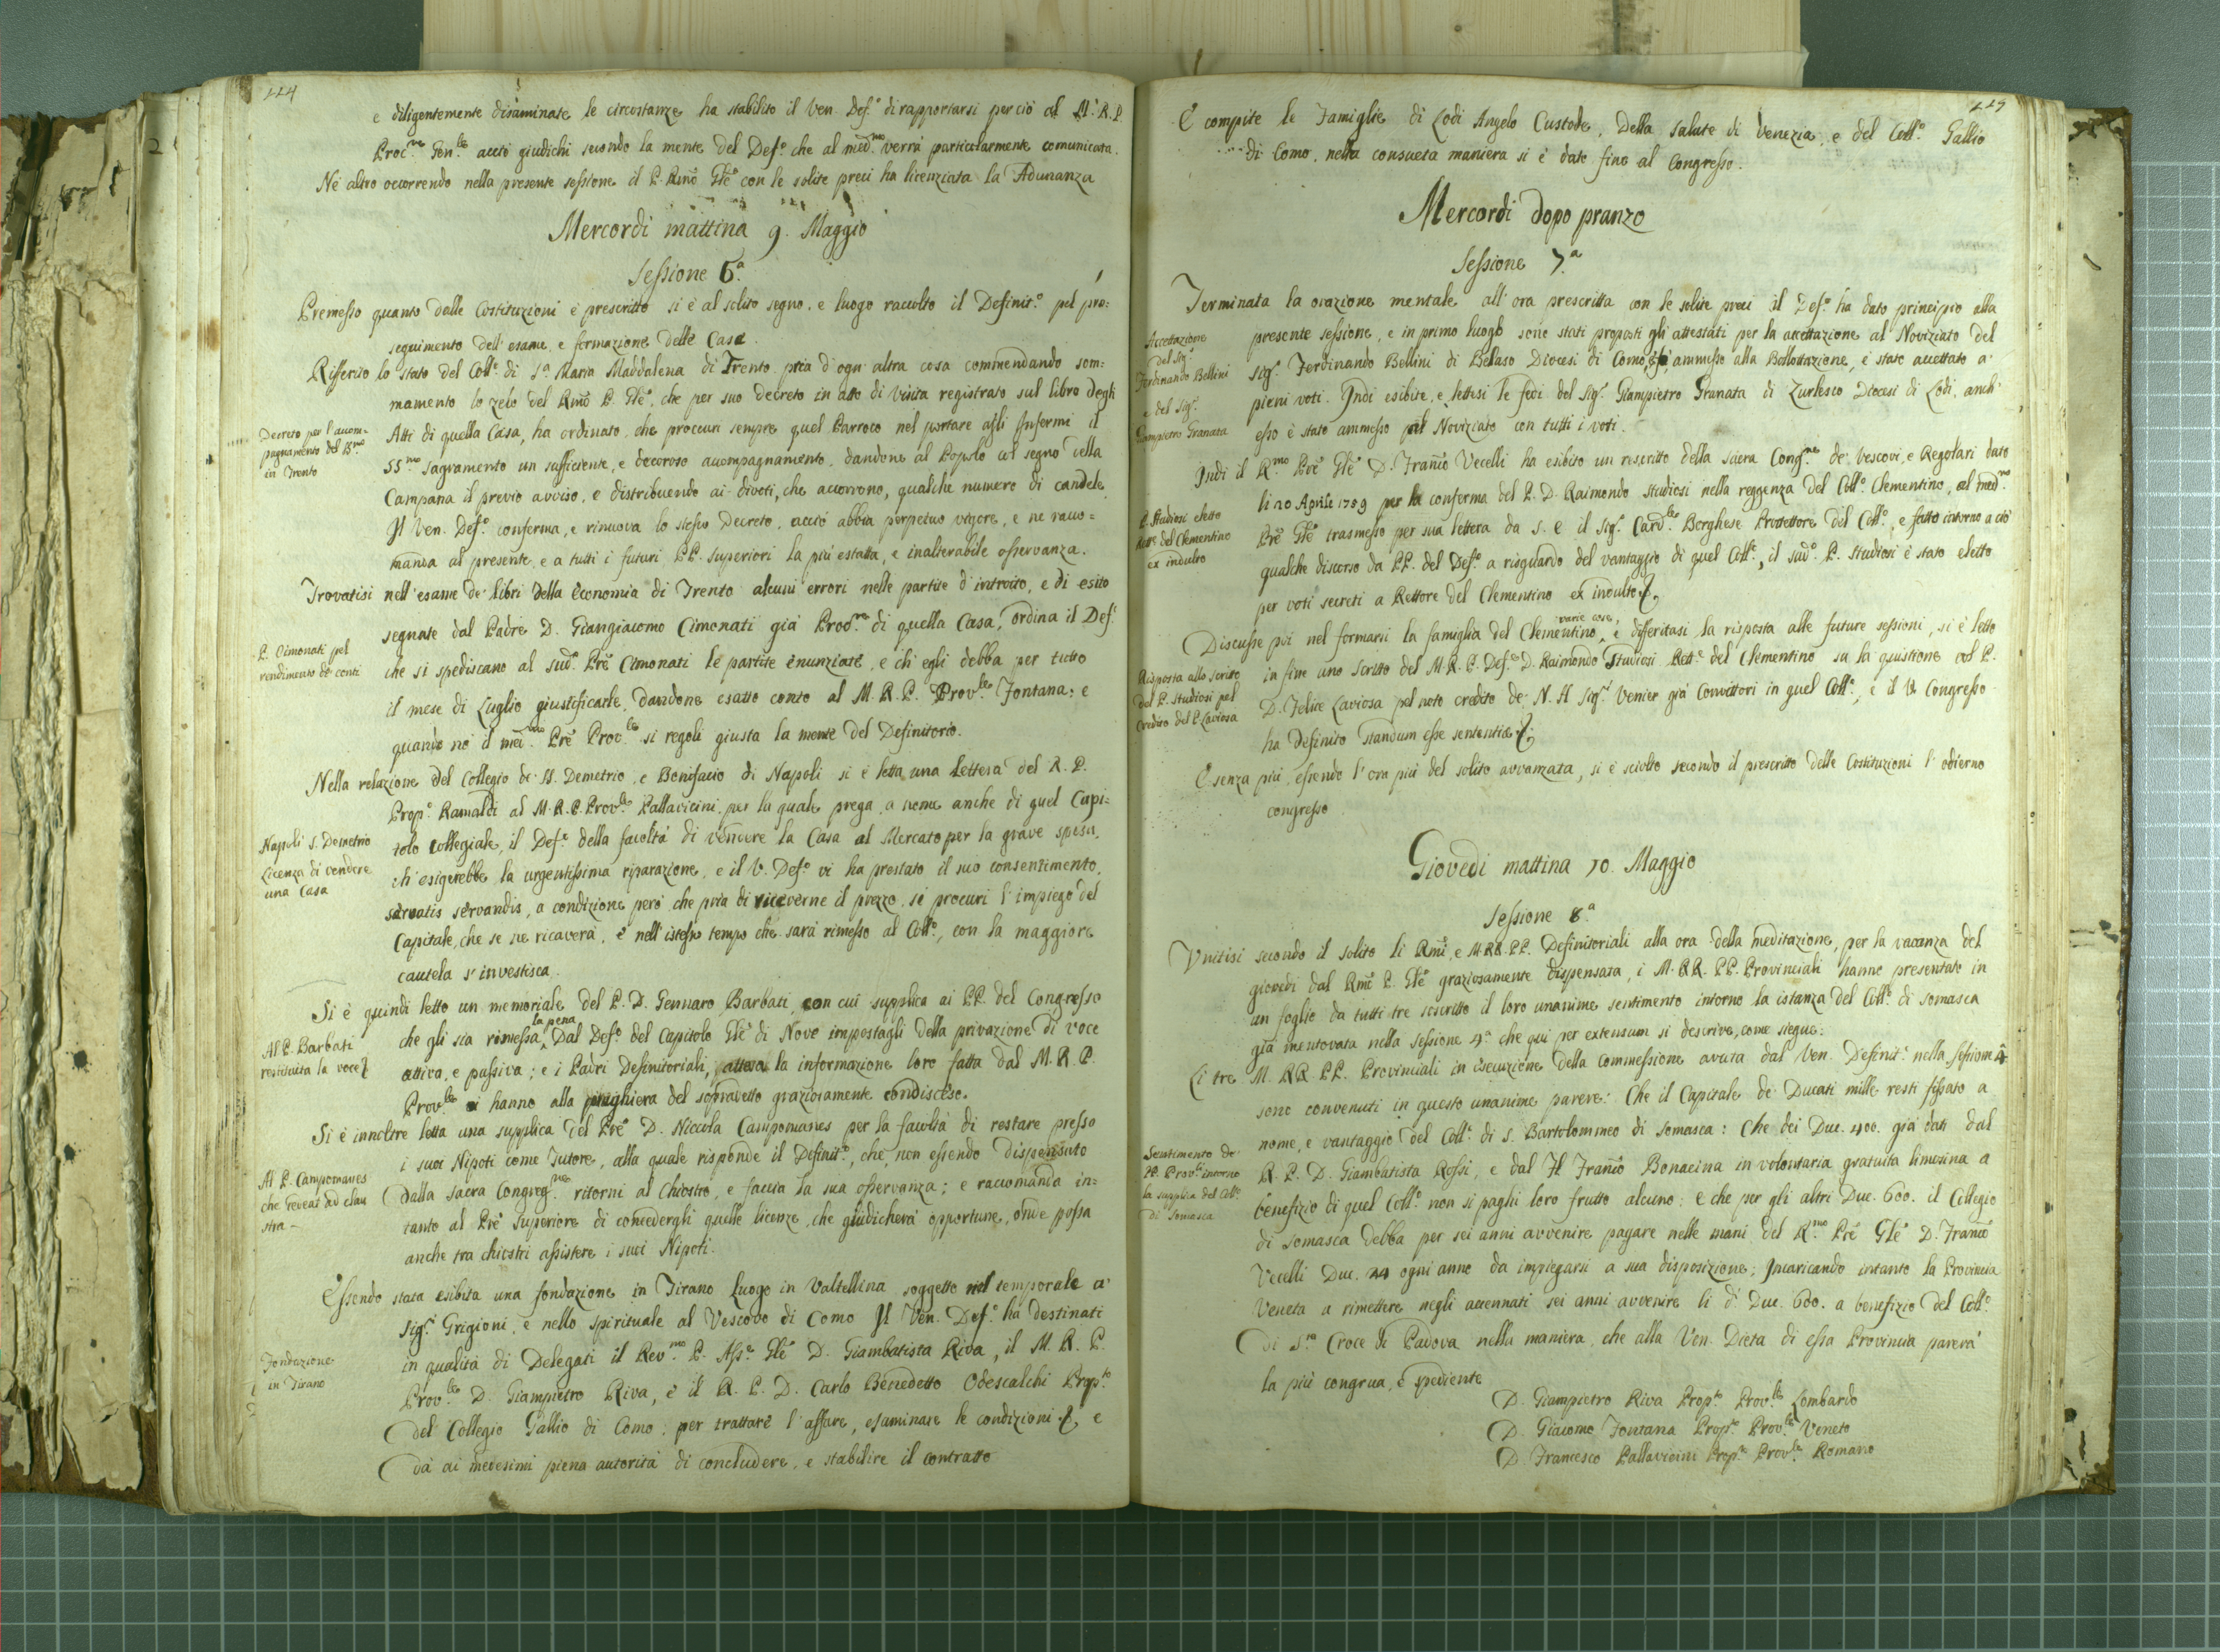 224
e diligentemente disaminate le circostanze ha stabilito il Ven. Def.º di rapportarsi perciò al M. R. P.
Proc.ʳᵉ Gen.ˡᵉ acciò giudichi secondo la mente del Def.º che al med.ᵐᵒ verrà particolarmente comunicata.
Nè altro occorrendo nella presente sessione il P. Rm̃o Gñle con le solite preci ha licenziata la Adunanza
Mercordi mattina 9. Maggio
Sessione 6ª.
Premesso quanto dalle Costituzioni è prescritto si è al solito segno, e luogo raccolto il Definit.º pel pro:
seguimento dell' esame, e formazione delle Case.
Riferito lo stato del Coll.º di S.ª Maria Maddalena di Trento pria d' ogn' altra cosa commendando som:
mamente lo zelo del Rm̃o P. Gñle, che per suo decreto in atto di Visita registrato sul libro degli
Decreto per l' accom=
pagnamento del SS.ᵐᵒ
in Trento
Atti di quella Casa, ha ordinato, che proccuri sempre quel Parroco nel portare agli Infermi il
SS.ᵐᵒ Sagramento un sufficiente, e decoroso accompagnamento, dandone al Popolo col segno della
Campana il previo avviso, e distribuendo ai divoti, che accorrono, qualche numero di candele
Il Ven. Def.º conferma, e rinuova lo stesso Decreto, acciò abbia perpetuo vigore, e ne racco=
manda al presente, e a tutti i futuri PP. Superiori la più esatta, e inalterabile osservanza.
Trovatisi nell' esame de' libri della Economia di Trento alcuni errori nelle partite d' introito, e di esito
P. Cimonati pel
rendimento de' conti
segnate dal Padre D. Giangiacomo Cimonati già Proc.ʳᵉ di quella Casa, ordina il Def.º
che si spediscano al sud.º Prẽ Cimonati le partite enunziate, e ch' egli debba per tutto
il mese di Luglio giustificarle, dandone esatto conto al M. R. P. Prov.ˡᵉ Fontana: e
quando nò il med.ᵐᵒ Prẽ Prov.ˡᵉ si regoli giusta la mente del Definitorio.
Nella relazione del Collegio de' SS. Demetrio, e Bonifacio di Napoli si è letta una Lettera del R. P.
Prop.º Ramaldi al M. R. P. Prov.ˡᵉ Pallavicini, per la quale prega, a nome anche di quel Capi:
Napoli S. Demetrio
Licenza di vendere
una Casa
tolo Collegiale, il Def.º della facoltà di vendere la Casa al Mercato per la grave spesa,
ch' esigerebbe la urgentissima riparazione, e il V. Def.º vi ha prestato il suo consentimento,
servatis servandis, a condizione però che pria di riceverne il prezzo, si procuri l' impiego del
Capitale, che se ne ricaverà, e nell' istesso tempo che sarà rimesso al Coll.º, con la maggiore
cautela s' investisca.
Si è quindi letto un memoriale del P. D. Gennaro Barbati, con cui supplica ai PP. del Congresso
Al P. Barbati
restituita la voce
che gli sia rimessa la pena dal Def.º del Capitolo Gñle di Nove impostagli della privazione di voce
attiva, e passiva; e i Padri Definitoriali, attesa la informazione loro fatta dal M. R. P.
Prov.ˡᵉ si hanno alla preghiera del sopradetto graziosamente condisceso.
Si è innoltre letta una supplica del Prẽ D. Niccola Campomanes per la facoltà di restare presso
i suoi Nipoti come Tutore, alla quale risponde il Definit.º, che, non essendo dispensato
Al P. Campomanes
che redeat ad clau
stra
dalla sacra Congreg.ⁿᵉ ritorni al Chiostro, e faccia la sua osservanza; e raccomanda in=
tanto al Prẽ Superiore di concedergli quelle licenze, che giudicherà opportune, onde possa
anche tra chiostri assistere i suoi Nipoti.
Essendo stata esibita una fondazione in Tirano Luogo in Valtellina soggetto nel temporale a'
Sig.ʳⁱ Grigioni, e nello spirituale al Vescovo di Como Il Ven. Def.º ha destinati
Fondazione
in Tirano
in qualità di Delegati il Rev.ᵐᵒ P. Ass.ᵉ Gñle D. Giambatista Riva, il M. R. P.
Prov.ˡᵉ D. Giampietro Riva, e il R. P. D. Carlo Benedetto Odescalchi Prop.ᵗᵒ
del Collegio Gallio di Como, per trattare l' affare, esaminare le condizioni, e
dà ai medesimi piena autorità di concludere, e stabilire il contratto
225
E compite le Famiglie di Lodi Angelo Custode, della Salute di Venezia, e del Coll.º Gallio
di Como, nella consueta maniera si è dato fine al Congresso.
Mercordi dopo pranzo
Sessione 7.ª
Terminata la orazione mentale all' ora prescritta con le solite preci il Def.º ha dato principio alla
Accettazione
del Sig.ʳ
Ferdinando Bellini
e del Sig.ʳ
Giampietro Granata
presente sessione, e in primo luogo sono stati proposti gli attestati per la accettazione al Noviziato del
Sig.ʳ Ferdinando Bellini di Belaso Diocesi di Como, ammesso alla Ballottazione, è stato accettato a
pieni voti. Indi esibite, e lettesi le fedi del Sig.ʳ Giampietro Granata di Zurlesco Diocesi di Lodi, anch'
esso è stato ammesso al Noviziato con tutti i voti.
Indi il R.ᵐᵒ Prẽ Gñle D. Franc̃o Vecelli ha esibito un rescritto della sacra Cong.ⁿᵉ de' Vescovi, e Regolari dato
P. Studiosi eletto
Rett.ᵉ del Clementino
ex indulto
li 20 Aprile 1759 per la conferma del P. D. Raimondo Studiosi nella reggenza del Coll.º Clementino, al med.ᵐᵒ
Prẽ Gñle trasmesso per sua lettera da S. E. il Sig.ʳ Card.ˡᵉ Borghese Protettore del Coll.º, e fatto intorno a ciò
qualche discorso da PP. del Def.º a risguardo del vantaggio di quel Coll.º, il sud.º P. Studiosi è stato eletto
per voti secreti a Rettore del Clementino ex indulto.
Discusse poi nel formarsi la famiglia del Clementino varie cose, e differitasi la risposta alle future sessioni, si è letto
Risposta allo scritto
del P. Studiosi pel
Credito del P. Laviosa
in fine uno scritto del M. R. P. Def.ᵉ D. Raimondo Studiosi Rett.ᵉ del Clementino su la quistione del P.
D. Felice Laviosa pel noto credito de' N. H. Sig.ʳⁱ Venier già Convittori in quel Coll.º, e il V. Congresso
ha definito standum esse sententiæ.
E senza più, essendo l' ora più del solito avvanzata, si è sciolto secondo il prescritto delle Costituzioni l' odierno
congresso
Giovedi mattina 10. Maggio
Sessione 8.ª
Unitisi secondo il solito li Rm̃i, e M. RR. PP. Definitoriali alla ora della meditazione, per la vacanza del
giovedi dal Rm̃o P. Gñle graziosamente dispensata, i M. RR. PP. Provinciali hanno presentato in
un foglio da tutti tre soscritto il loro unanime sentimento intorno la istanza del Coll.º di Somasca
già mentovata nella Sessione 4.ª che qui per extensum si descrive, come siegue:
Li tre M. RR. PP. Provinciali in esecuzione della commessione avuta dal Ven. Definit.º nella Session 4ª
sono convenuti in questo unanime parere: Che il Capitale de' Ducati mille resti fissato a
nome, e vantaggio del Coll.º di S. Bartolommeo di Somasca: Che dei Duc. 400. già dati dal
Sentimento de'
PP. Prov.ˡⁱ intorno
la supplica del Coll.º
di Somasca
R. P. D. Giambatista Rossi, e dal Fl. Franc̃o Bonacina in volontaria gratuita limosina a
benefizio di quel Coll.º non si paghi loro frutto alcuno: e che per gli altri Duc. 600. il Collegio
di Somasca debba per sei anni avvenire pagare nelle mani del R.ᵐᵒ Prẽ Gñle D. Franc̃o
Vecelli Duc. 24 ogni anno da impiegarsi a sua disposizione; Incaricando intanto la Provincia
Veneta a rimettere negli accennati sei anni avvenire li d.ⁱ Duc. 600. a benefizio del Coll.º
di S.ᵗᵃ Croce di Padova nella maniera, che alla Ven. Dieta di essa Provincia parerà
la più congrua, e spediente
D. Giampietro Riva Prop.ᵗᵒ Prov.ˡᵉ Lombardo
D. Giacomo Fontana Prop.ᵗᵒ Prov.ˡᵉ Veneto
D. Francesco Pallavicini Prop.ᵗᵒ Prov.ˡᵉ Romano